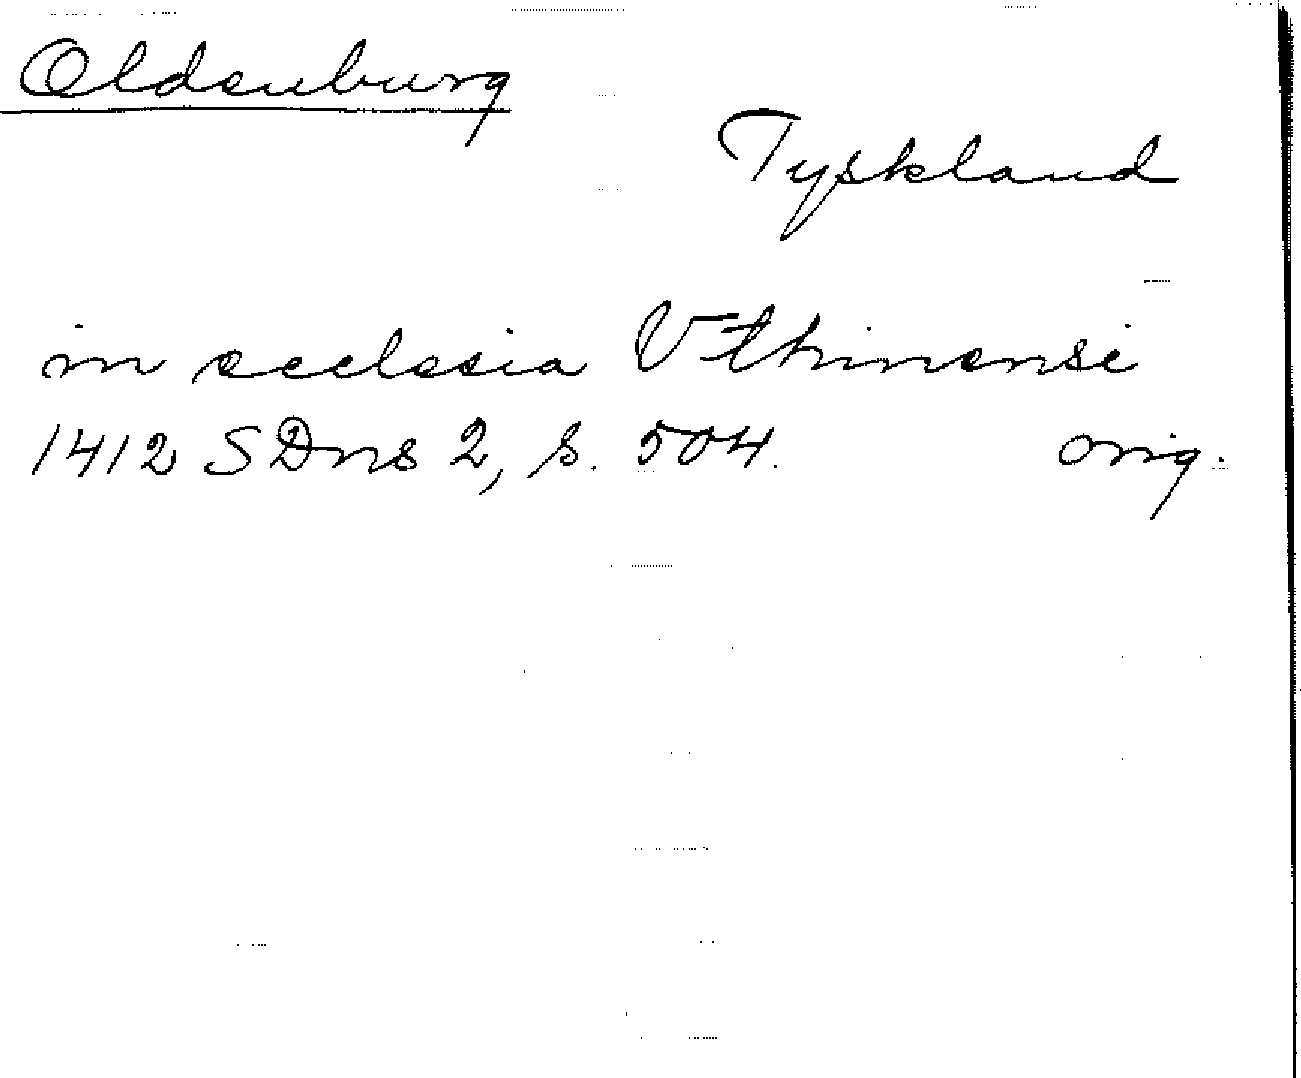 Oldenburg
Tyskland
in ecclesia Vthinensi
1412 SDns 2, s. 504. orig.